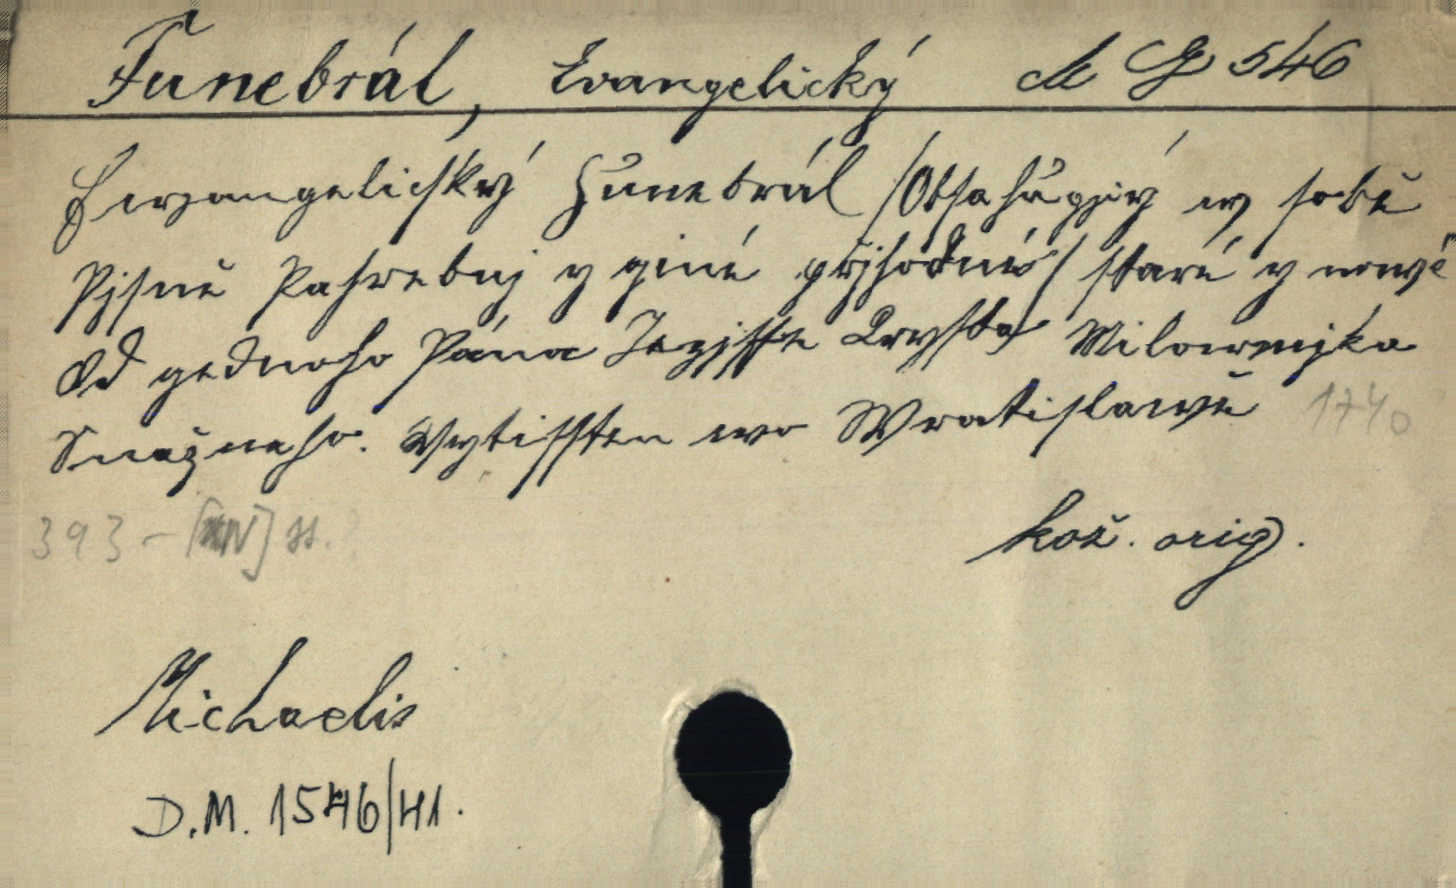 Funebrál, Evangelický M G 546
Ewangelický Funebrál /Obsahugjcý w sobě
Pjsně Pohřebnj y giné přjhodné/ staré y nowé
Od gednoho Pána Gezjsse Krysta Milownjka
Snažneho. Wytisstěn we Wratislawě 1740
393 - ss.
kož. orig.
Michaelis
D.M. 1546/41.